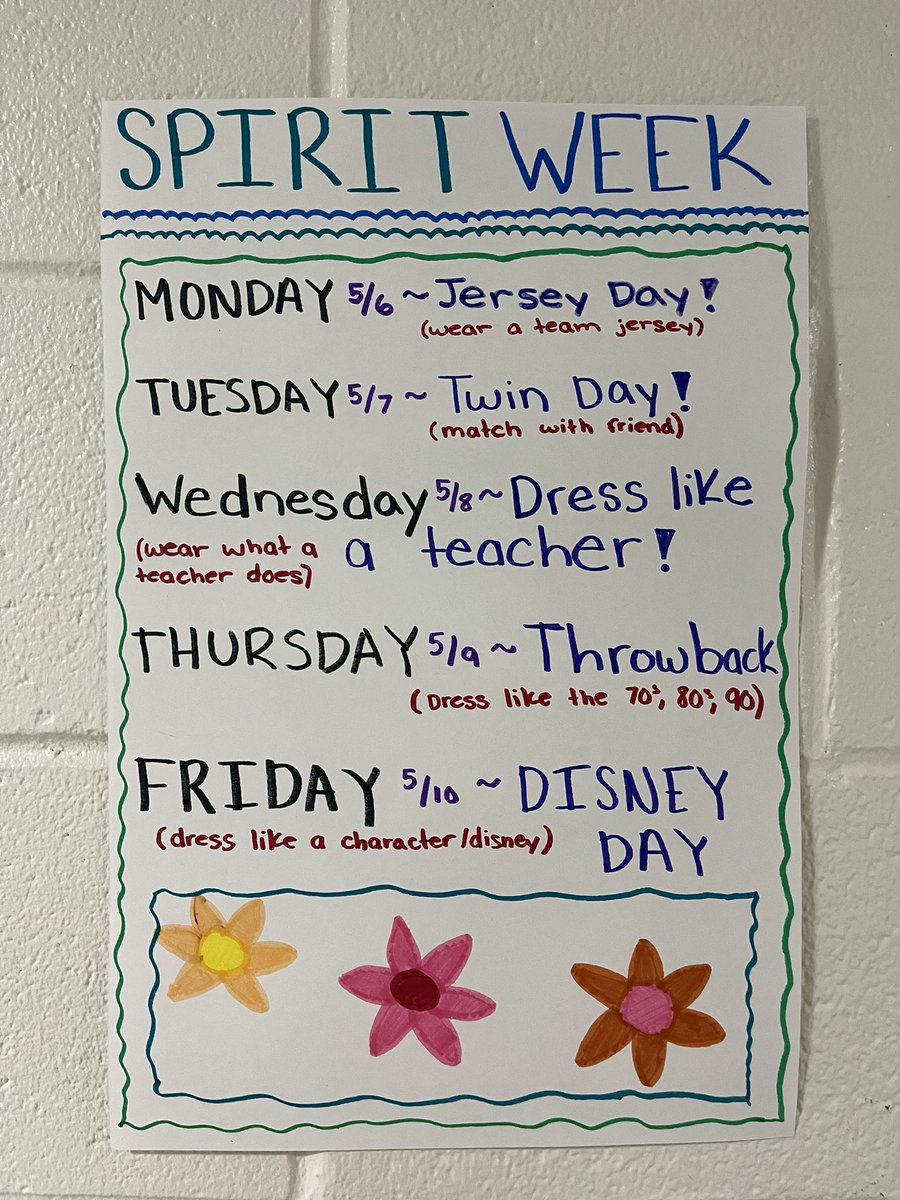 SPIRIT WEEK
MONDAY 5/6 ~ Jersey Day!
(wear a team jersey)
TUESDAY 5/7 ~ Twin Day!
(match with friend)
Wednesday 5/8 ~ Dress like
a teacher!
(wear what a
teacher does)
THURSDAY 5/9 ~ Throwback
(Dress like the 70s, 80s, 90)
FRIDAY 5/10 ~ DISNEY
DAY
(dress like a character/disney)